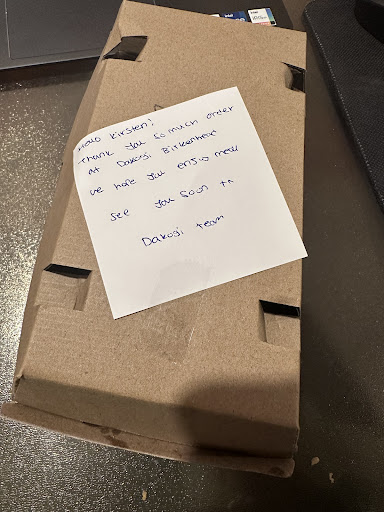 Hello Kirsten!
Thank you so much order
At Dakogi Birkenhead
we hope you enjio meal
see you soon ^^
Dakogi team
intel